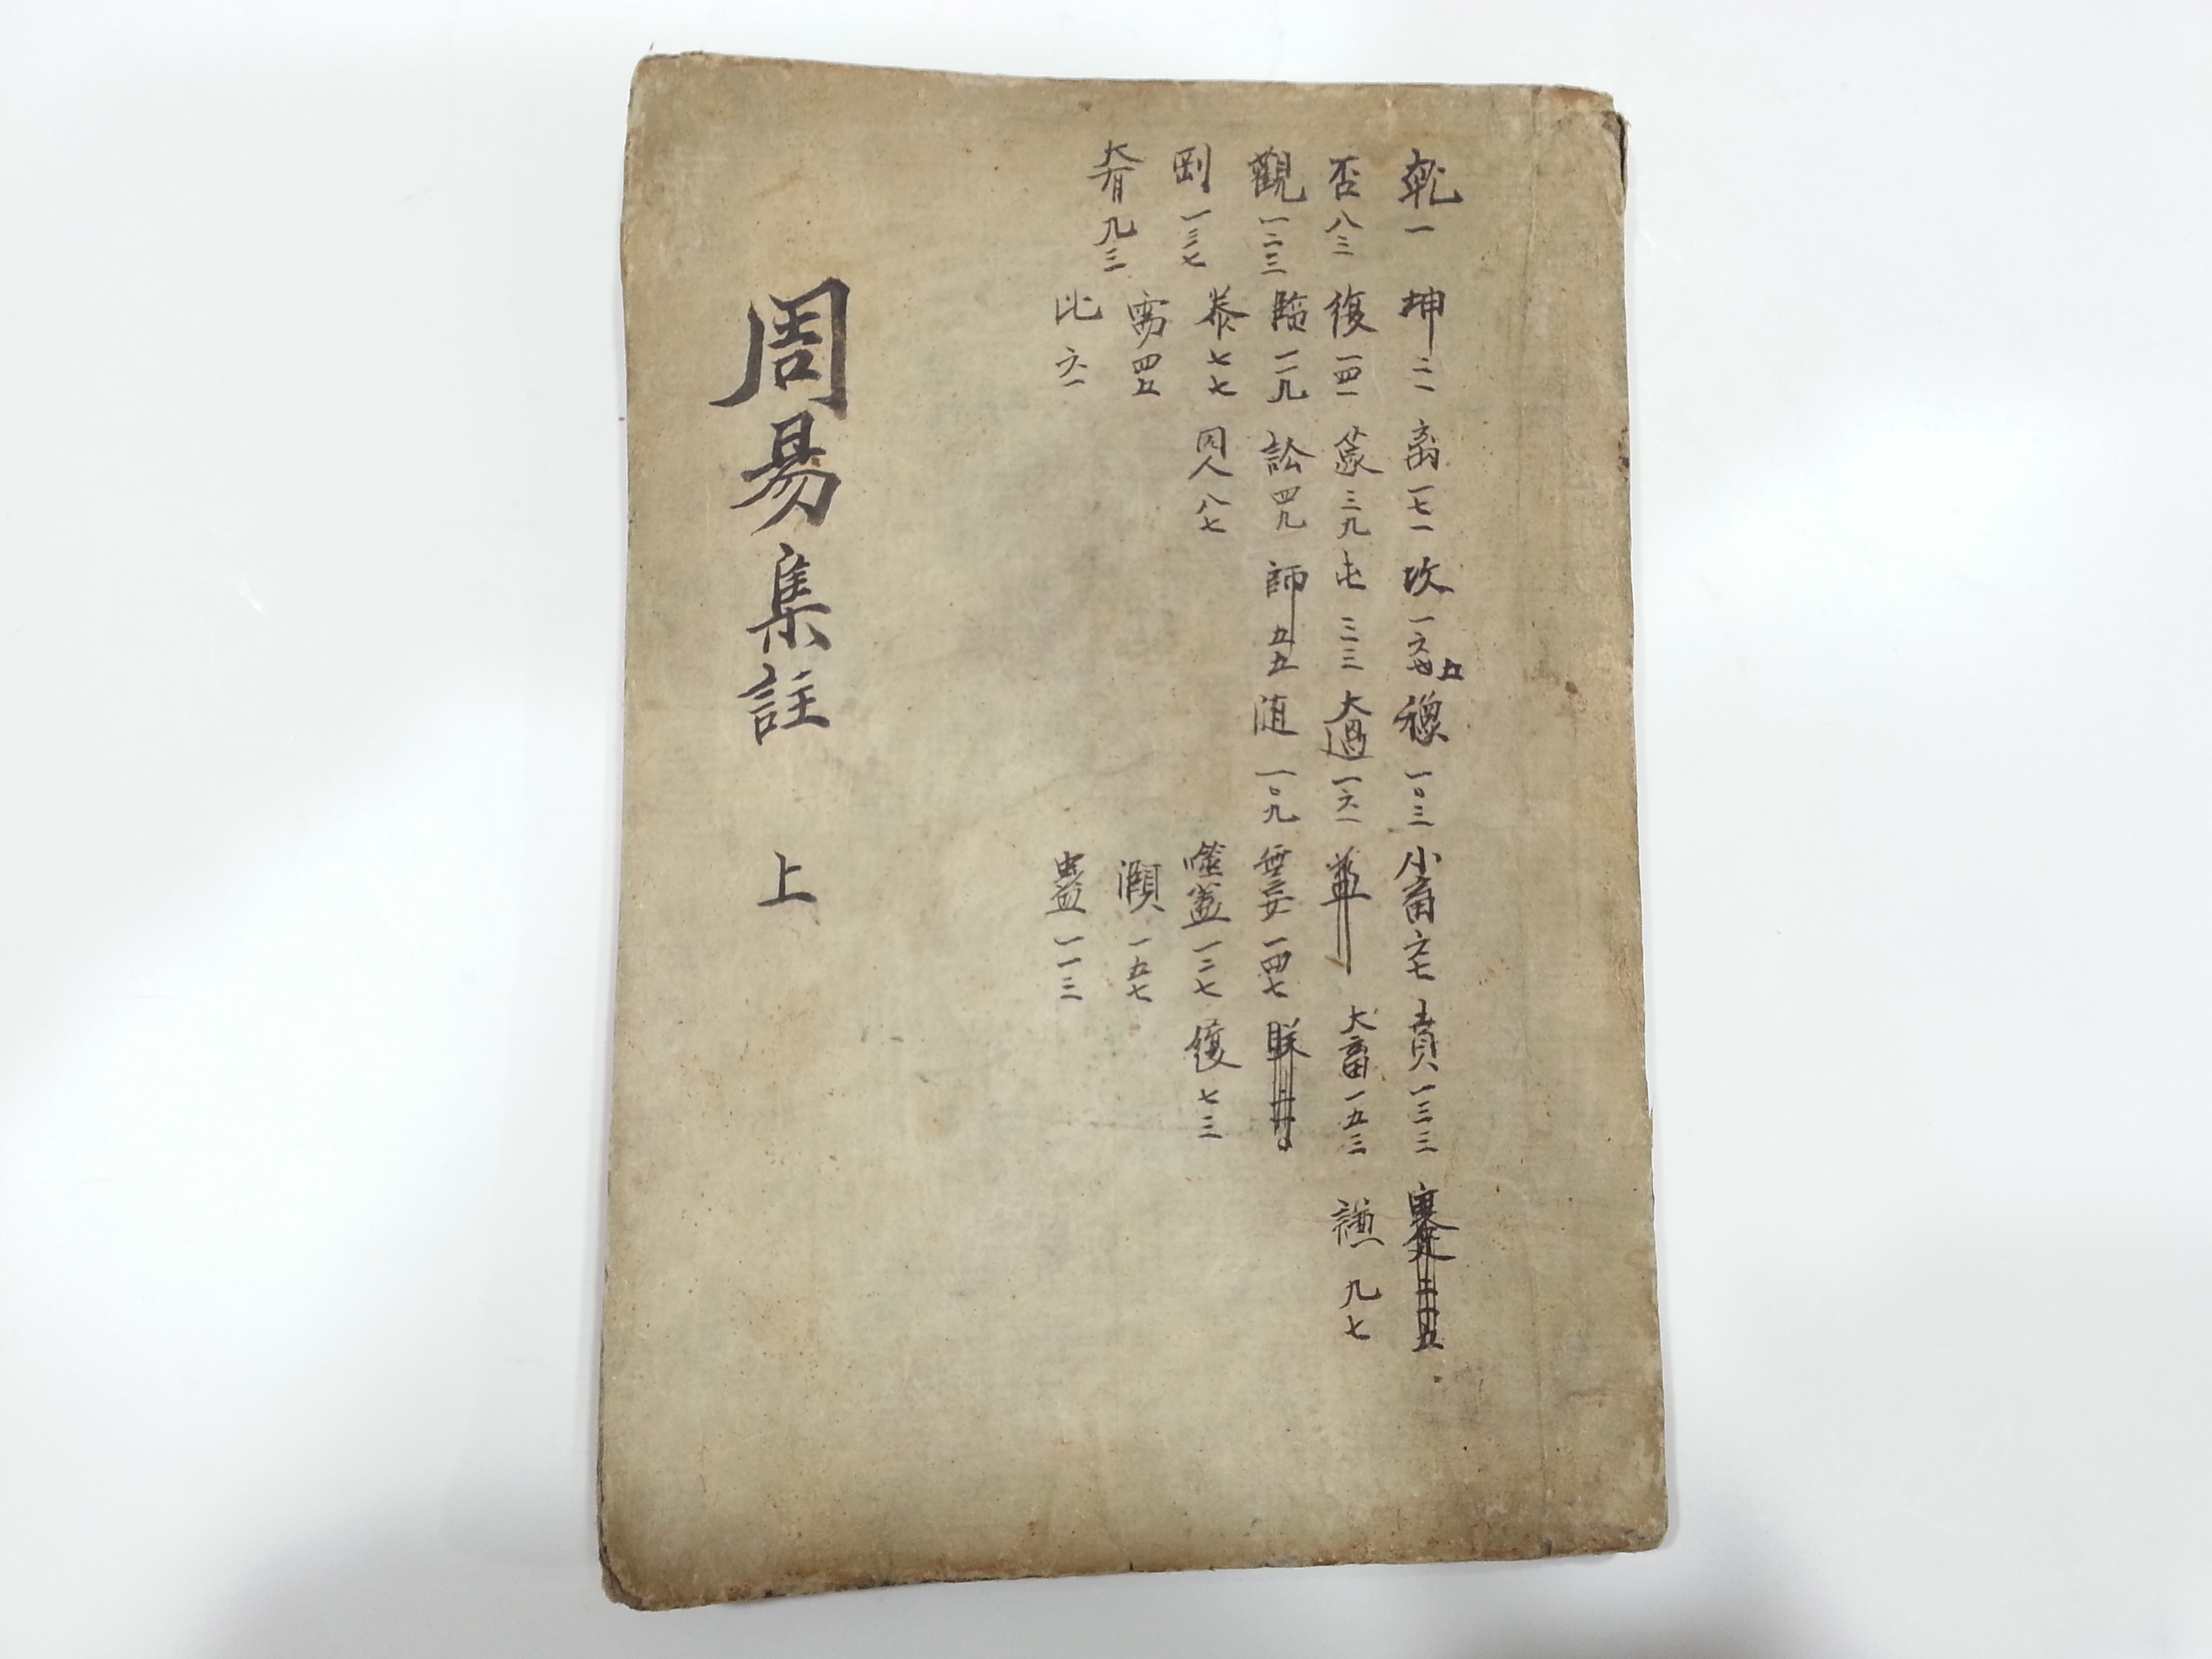 乾 一 坤 二一 离 一七一 坎 一六五 豫 一〇三 小畜 六七 賁 一三三
否 八三 復 一四一 蒙 三九 屯 三三 大過 一六一 大畜 一五三 謙 九七
觀 一二三 臨 一一九 訟 四九 師 五五 随 一〇九 無妄 一四七
剝 一三七 泰 七七 同人 八七 噬盍 一二七 履 七三
大有 九三 需 四五 頤 一五七
比 六一 蠱 一一三
周易集註 上